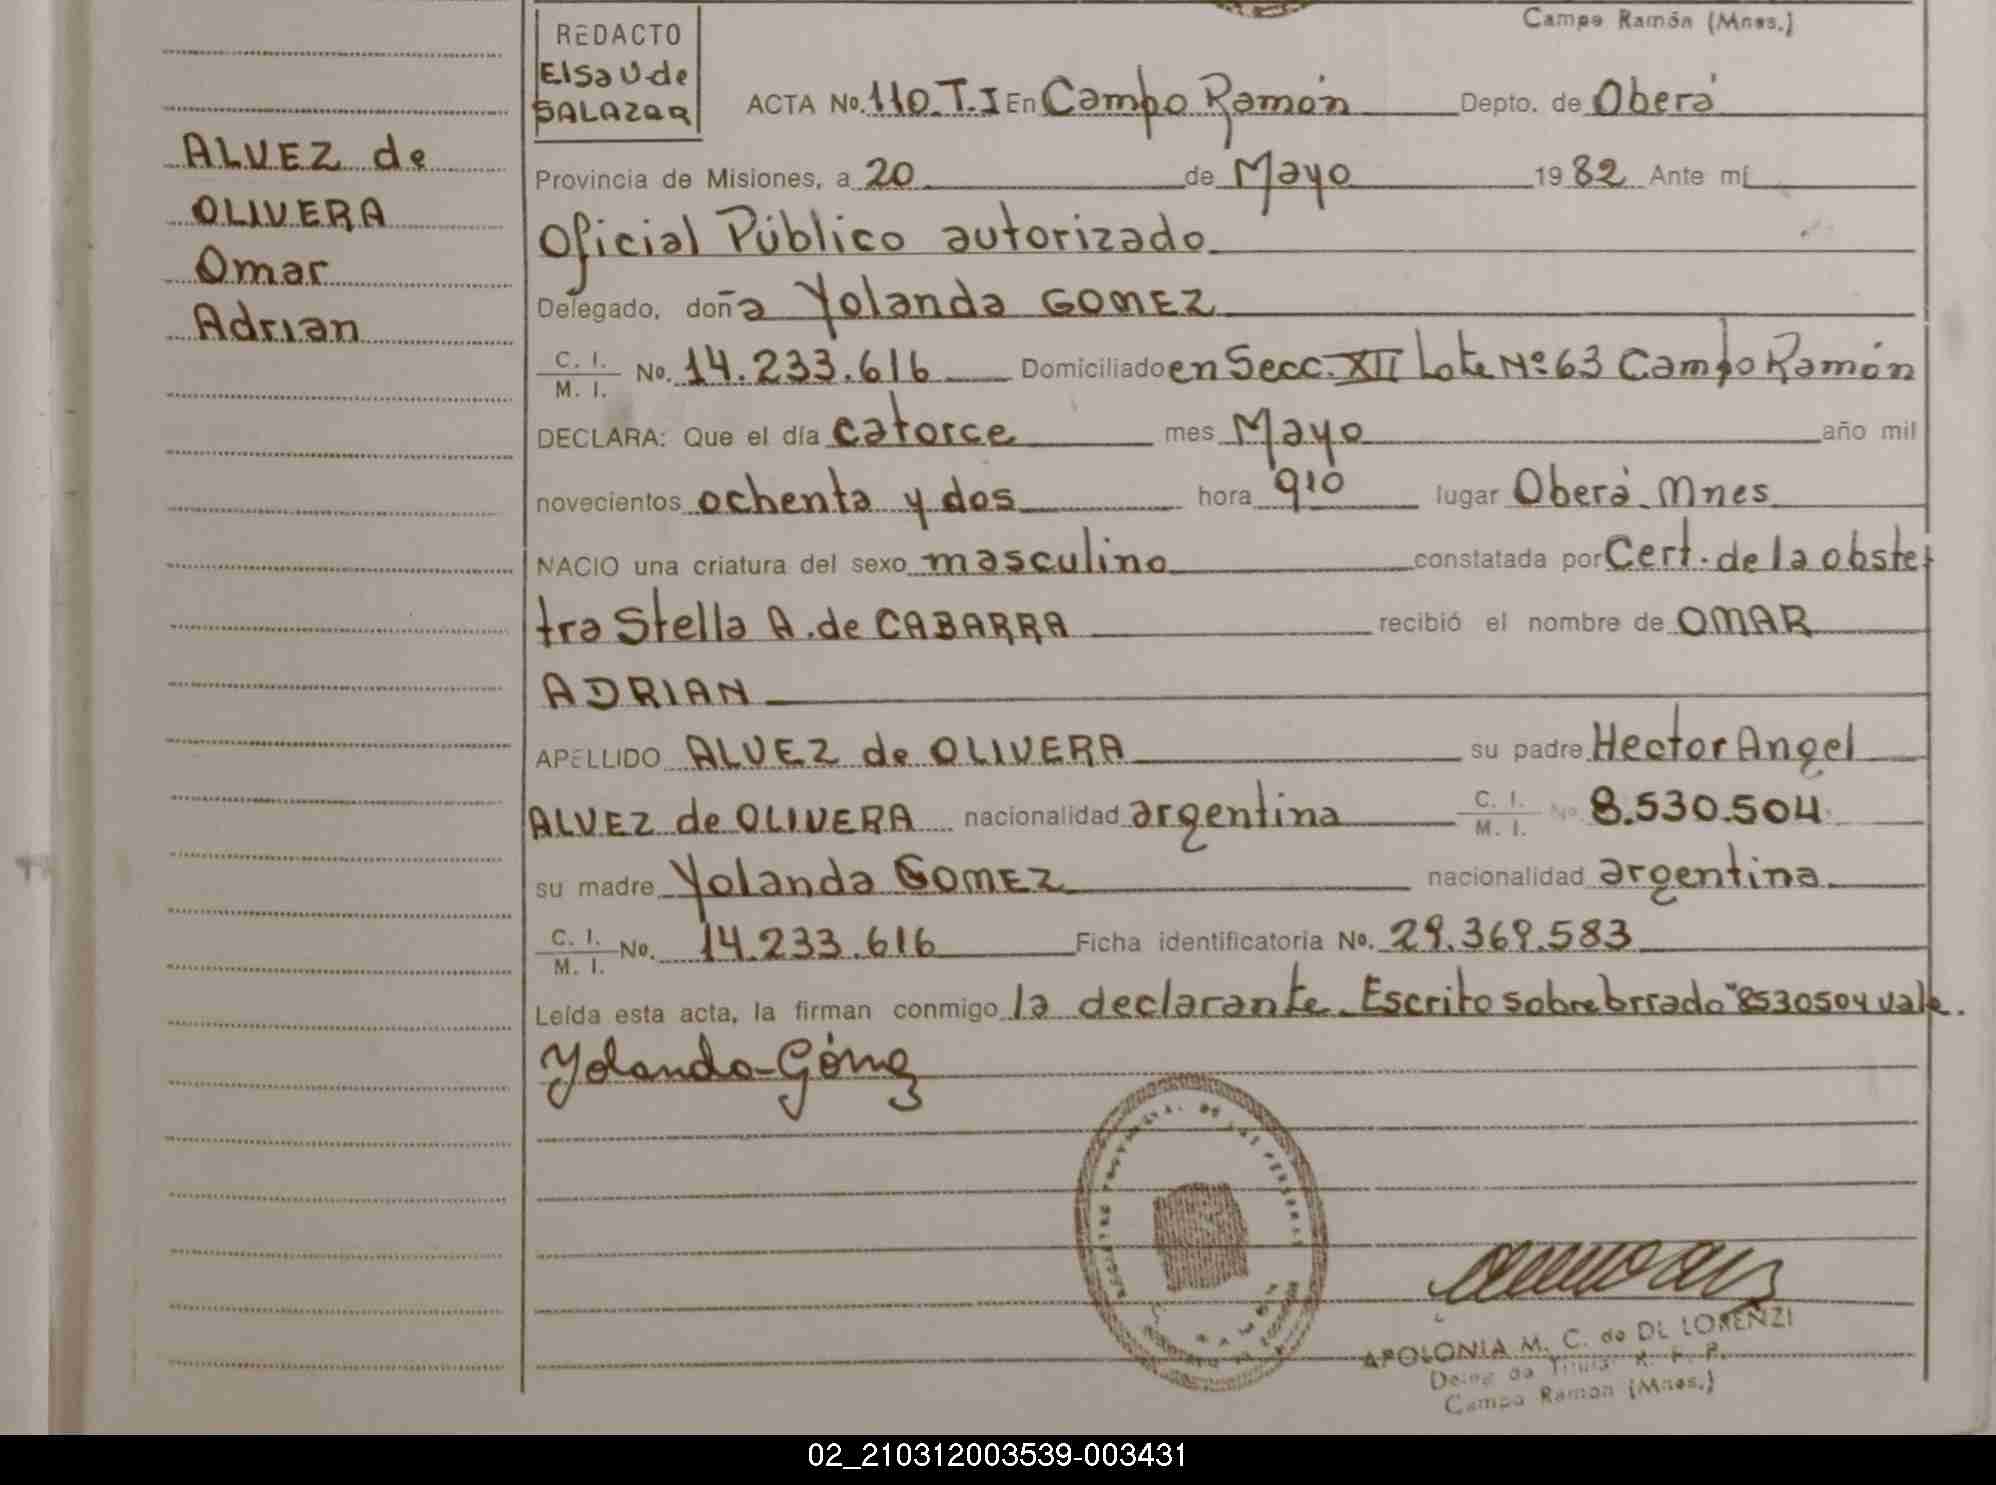 Campo Ramón (Mnes.)
REDACTO
Elsa U. de
SALAZAR
ALVEZ de
OLIVERA
Omar
Adrian
ACTA No. 110. T. I En Campo Ramón Depto. de Oberá
Provincia de Misiones, a 20 de Mayo 1982 Ante mí
Oficial Público autorizado
Delegado, doña Yolanda GOMEZ
C. I. M. I. No. 14.233.616 Domiciliado en Secc. XII Lote Nº 63 Campo Ramón
DECLARA: Que el día catorce mes Mayo año mil
novecientos ochenta y dos hora 910 lugar Oberá Mnes
NACIO una criatura del sexo masculino constatada por Cert. de la obste
tra Stella A. de CABARRA recibió el nombre de OMAR
ADRIAN
APELLIDO ALVEZ de OLIVERA su padre Hector Angel
ALVEZ de OLIVERA nacionalidad argentina C. I. M. I. No 8.530.504
su madre Yolanda GOMEZ nacionalidad argentina
C. I. M. I. No. 14.233.616 Ficha identificatoria No. 29.369.583
Leída esta acta, la firman conmigo la declarante. Escrito sobrebrrado "8530504 vale.
Yolanda Gómez
REGISTRO PROVINCIAL DE LAS PERSONAS
APOLONIA M. C. de DE LORENZI
Campo Ramón (Mnes.)
02_210312003539-003431